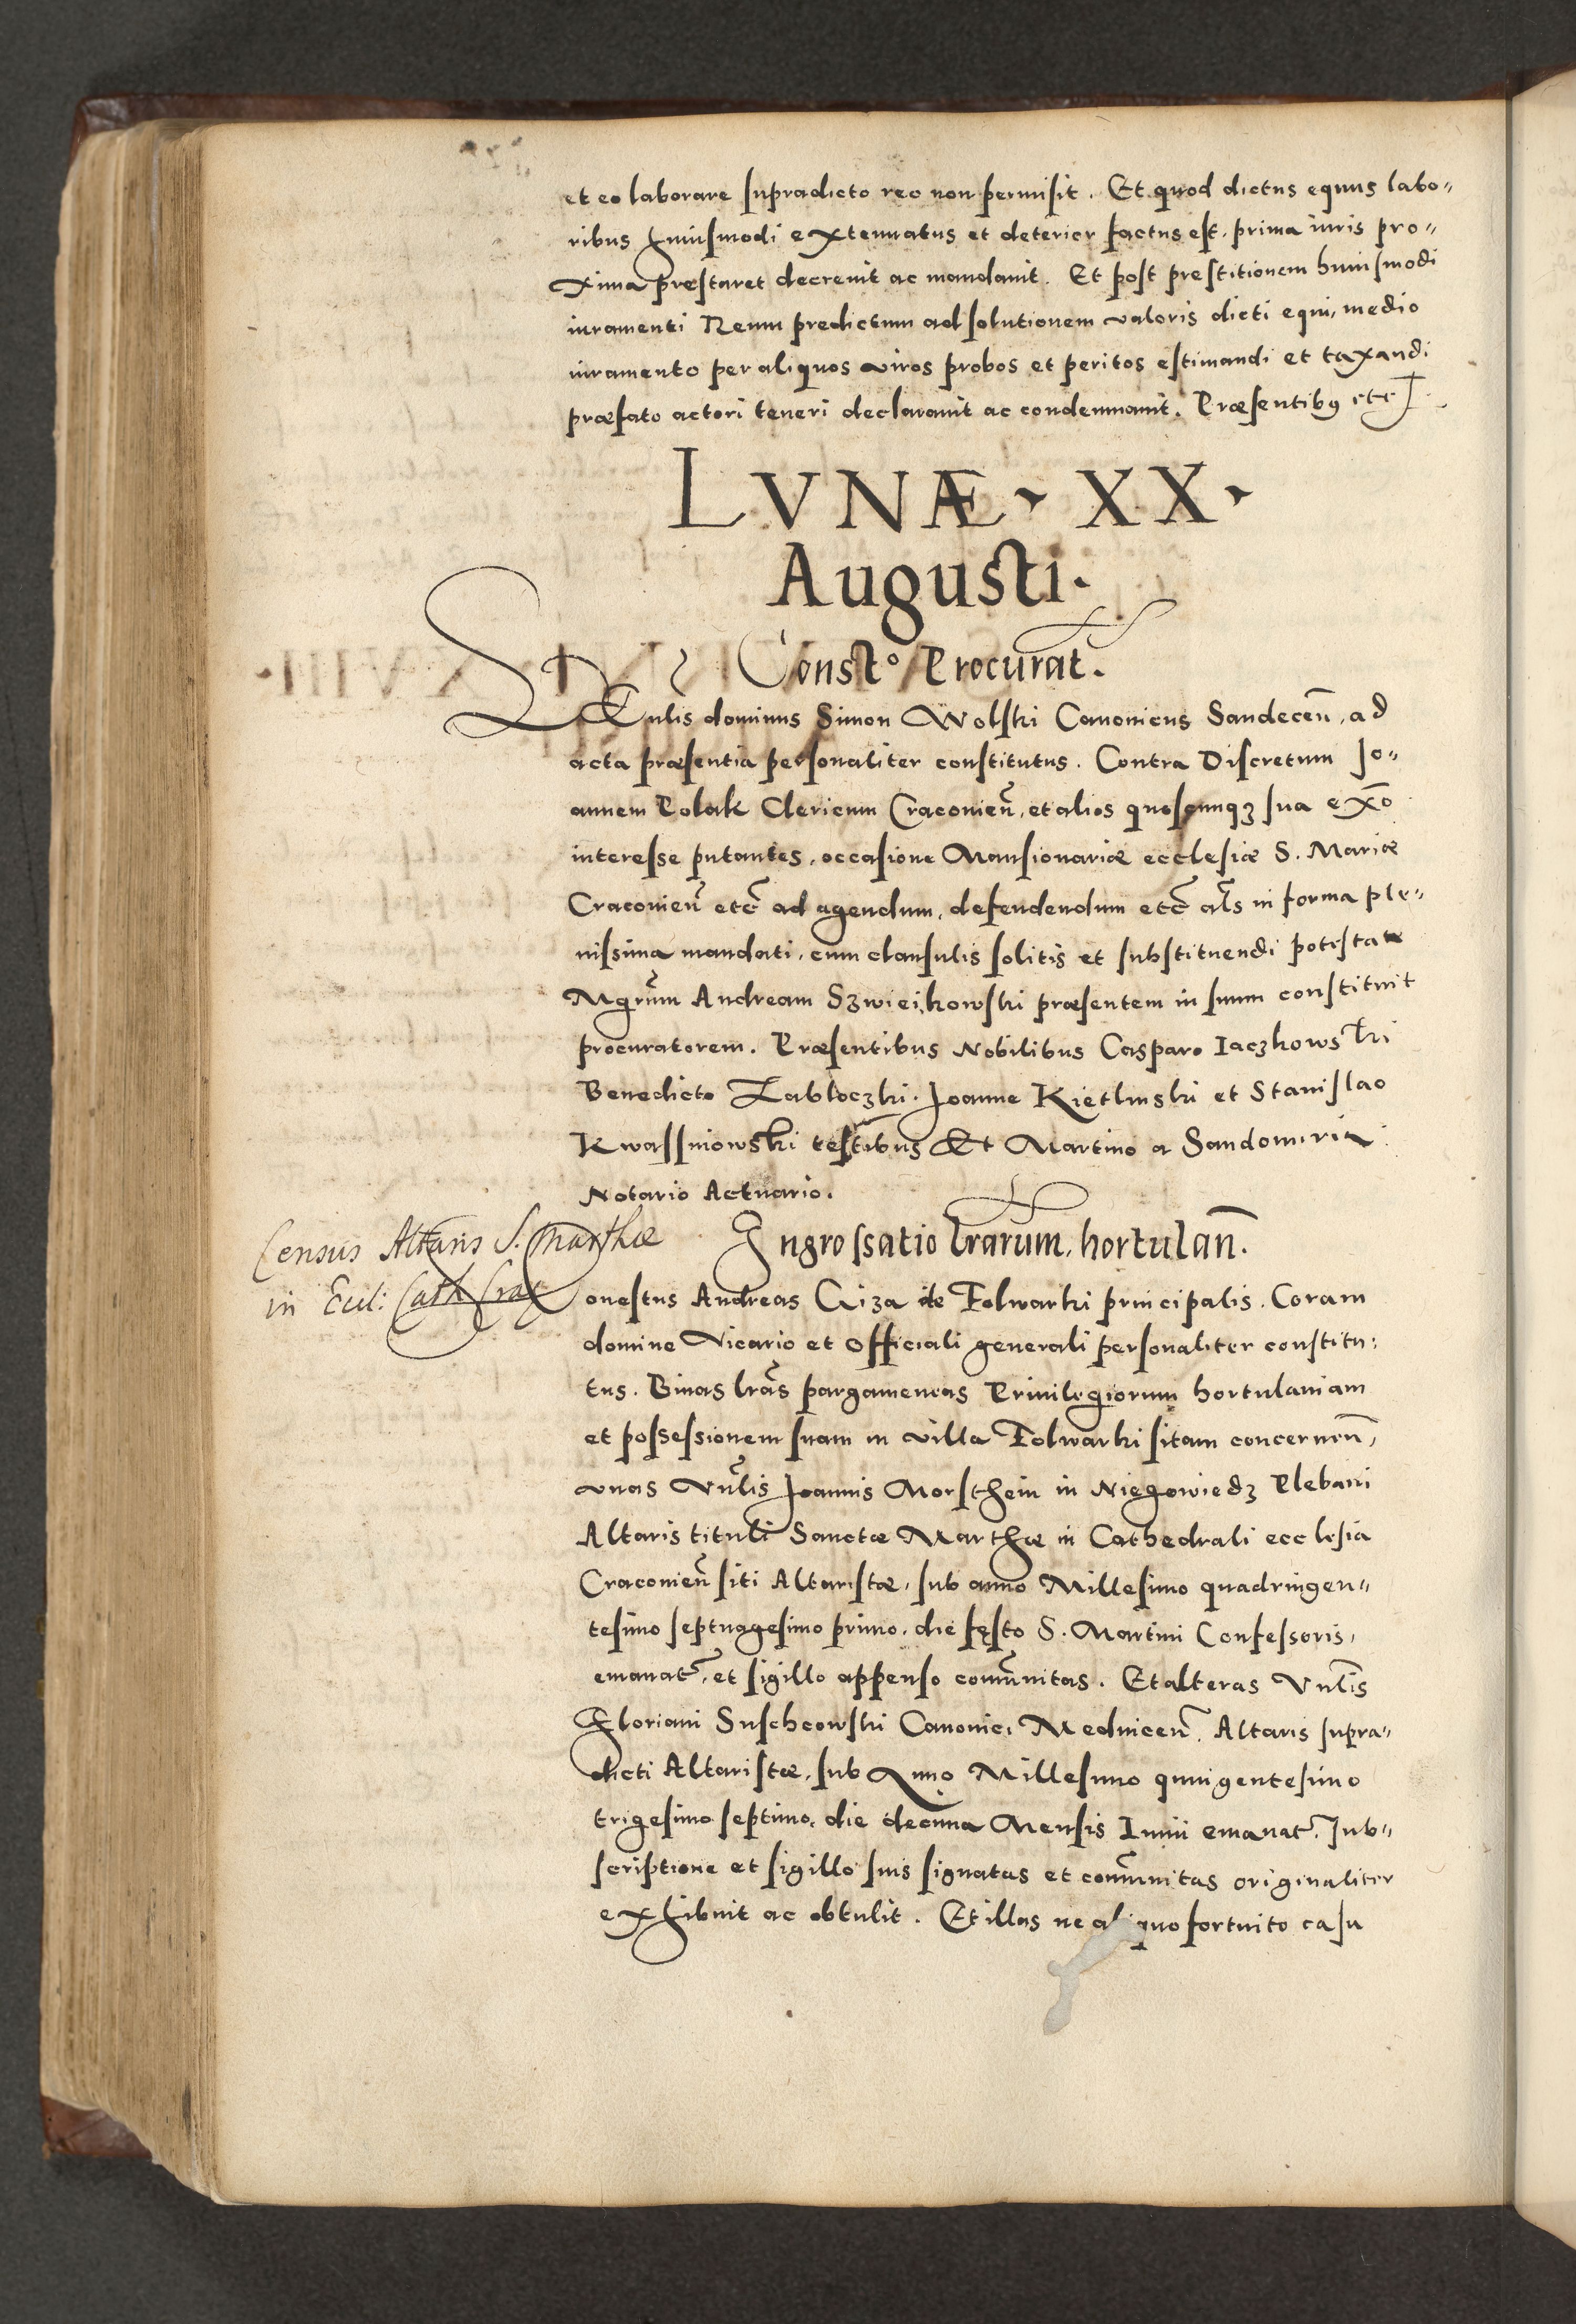 et eo laborare supradicto reo non permisit. Et quod dictus equus labo-
ribus huiusmodi extenuatus et deterior factus est, prima iuris pro-
xima præstaret decreuit ac mandauit. Et post prestitionem huiusmodi
iuramenti Reum predictum ad solutionem valoris dicti equi, medio
iuramento per aliquos viros probos et peritos estimandi et taxandi
præfato actori teneri declarauit ac condemnauit. Præsentibus etc
LVNÆ. XX.
Augusti.
Const° Procurat.
Vnlis dominus Simon Wolski Canonicus Sandecen, ad
acta præsentia personaliter constitutus. Contra Discretum Jo-
annem Polak Clericum Cracouien, et alios quoscunqz sua exo
interesse putantes, occasione Mansionariæ ecclesiæ S. Mariæ
Cracouien etc ad agendum, defendendum etc als in forma ple-
nissima mandati, cum clausulis solitis et substituendi potestate
Mgrum Andream Szwieikowski præsentem in suum constituit
procuratorem. Præsentibus Nobilibus Casparo Iaczkowski
Benedicto Zabloczki. Joanne Kietlinski et Stanislao
Kwassniowski testibus Et Martino a Sandomiria
Notario Actuario.
Census Altaris S. Marthæ
in Eccl: Cath Crac
Ingrossatio lrarum, hortulan.
Honestus Andreas Giza de Folwarki principalis. Coram
domino Vicario et Officiali generali personaliter constitu:
tus. Binas lras pargameneas Priuilegiorum hortulaniam
et possessionem suam in villa Folwarki sitam concernen,
vnas Vnlis Joannis Morsthein in Niegowiedz Plebani
Altaris tituli Sanctæ Marthæ in Cathedrali ecclesia
Cracouien siti Altaristæ, sub anno Millesimo quadringen-
tesimo septuagesimo primo, die festo S. Martini Confessoris,
emanat, et sigillo appenso comunitas. Et alteras Vnlis
Floriani Suscheowski Canonici Mednicen. Altaris supra-
dicti Altaristæ, sub Anno Millesimo quingentesimo
trigesimo septimo, die decima Mensis Iunii emanat. sub-
scriptione et sigillo suis signatas et comunitas originaliter
exhibuit ac obtulit. Et illas ne aliquo fortuito casu